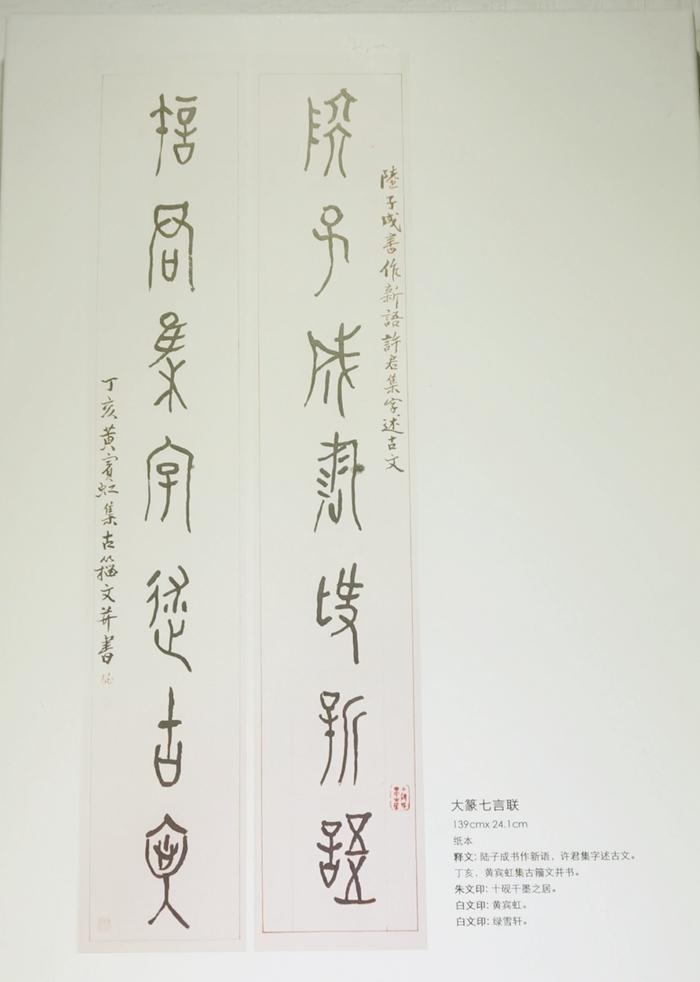 陸子成書作新語
陸子成書作新語許君集字述古文
許君集字述古文
丁亥黃賓虹集古籀文并書
大篆七言联
139cmx 24.1cm
纸本
释文：陆子成书作新语，许君集字述古文。
丁亥，黄宾虹集古籀文并书。
朱文印：十砚千墨之居。
白文印：黄宾虹。
白文印：绿雪轩。